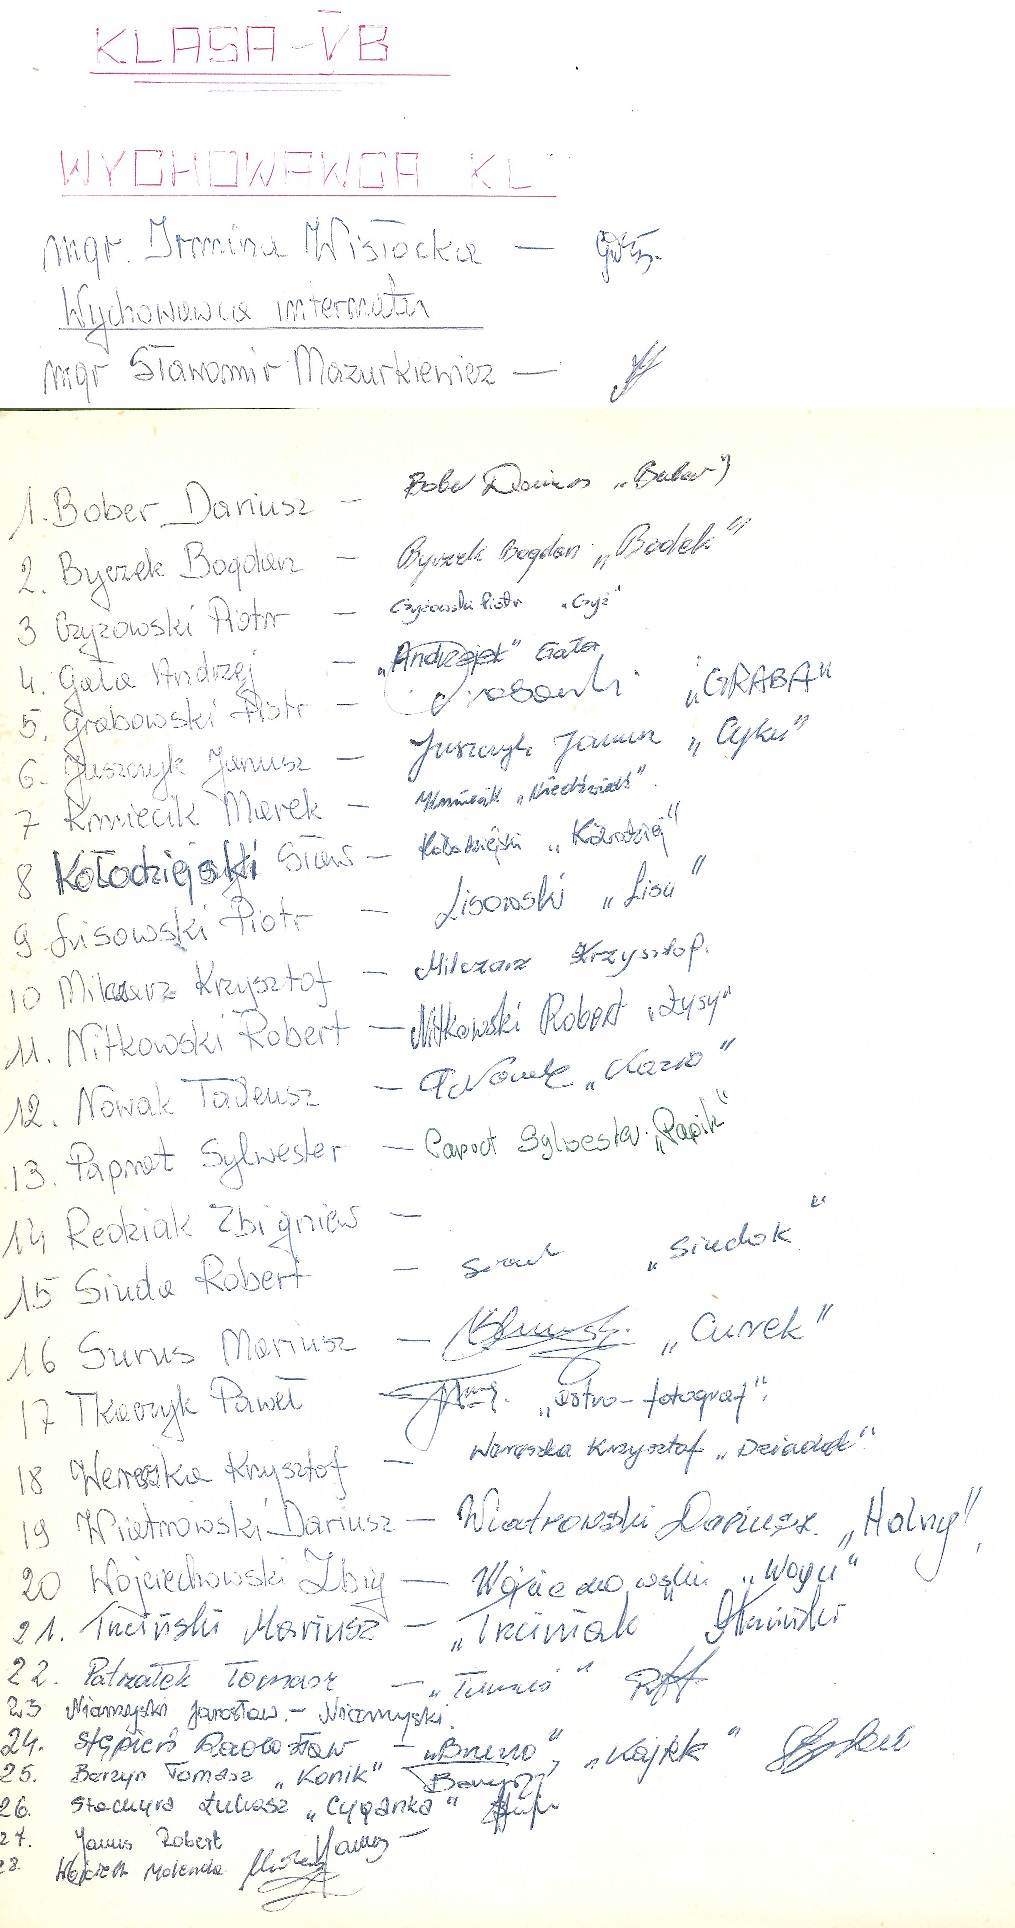 KLASA - VB
WYCHOWAWCA KL
mgr. Irmina Wisłocka —
Wychowawca internatu
mgr Sławomir Mazurkiewicz —
1. Bober Dariusz — Bober Dariusz „Bober”
2. Byczek Bogdan — Byczek Bogdan „Bodek”
3 Czyżowski Piotr — Czyżowski Piotr „Czyż”
4. Gała Andrzej — „Andrzejek” Gała
5. Grabowski Piotr — Grabowski „GRABA”
6. Juszczyk Janusz — Juszczyk Janusz „Cyku”
7 Kmiecik Marek — Kmiecik „Niedźwiedź”
8 Kołodziejski Sław — Kołodziejski „Kołodziej”
9 Lisowski Piotr — Lisowski „Lisu”
10 Milczarz Krzysztof — Milczarz Krzysztof.
11. Nitkowski Robert — Nitkowski Robert „Łysy”
12. Nowak Tadeusz — T Nowak
13. Papnot Sylwester — Sylwester „Papik”
14 Redziak Zbigniew —
15 Siuda Robert — „Siudok”
16 Surus Mariusz — „Currek”
17 Tkaczyk Paweł „astro-fotograf”.
18 Wereszka Krzysztof — Wereszka Krzysztof „Dziadek”
19 Wiatrowski Dariusz — Wiatrowski Dariusz. „Holny”
20 Wojciechowski Zbig — Wojciechowski „Wogu”
21. Trciński Mariusz — „Trciniak”
22. Patrzałek Tomasz —
23 Niamyski Jarosław. — Niamyski.
24. Stępień Radosław — „Bruno”, „Kojak”
25. Barzyn Tomasz „Konik”
26. Stachyra Łukasz „Cyganka”
27. Janus Robert Janus —
28. Wojciech Molenda